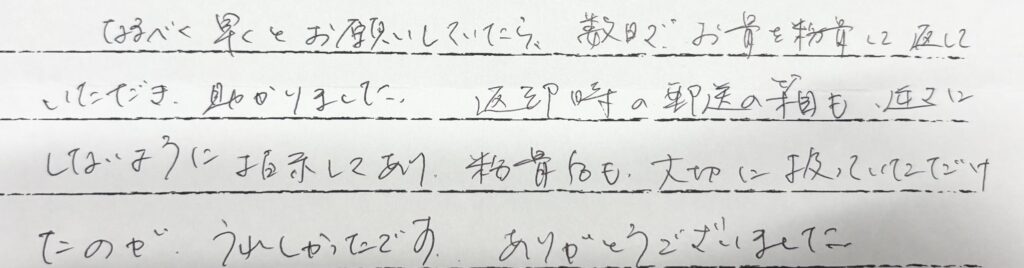 なるべく早くとお願いしていたら、数日で、お骨を粉骨して返して
いただき、助かりました。 返却時の郵送の箱も、逆さに
しないように指示してあり、粉骨后も、大切に扱っていただけ
たのが、うれしかったです。 ありがとうございました